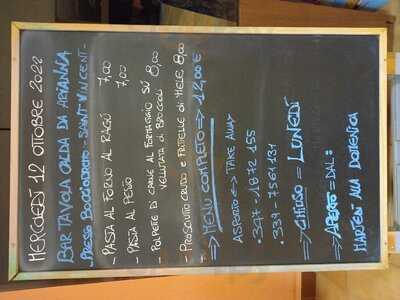 MERCOLEDÌ 12 OTTOBRE 2022
BAR TAVOLA CALDA DA ARIANNA
PRESSO BOCCIODROMO - SAINT-VINCENT -
- PASTA AL FORNO AL RAGÙ 7,00
- PASTA AL PESTO 7,00
- POLPETTE DI CARNE AL FORMAGGIO SÙ 8,00
VELLUTATA DI BROCCOLI
- PROSCIUTTO CRUDO E FRITTELLE DI MELE 8,00
=> MENU COMPLETO => 12,00 €
ASPORTO => TAKE AWAY
• 347 - 1872 155
• 339 - 7561131
=> CHIUSO = LUNEDÌ
=> APERTO = DAL:
MARTEDÌ ALLA DOMENICA